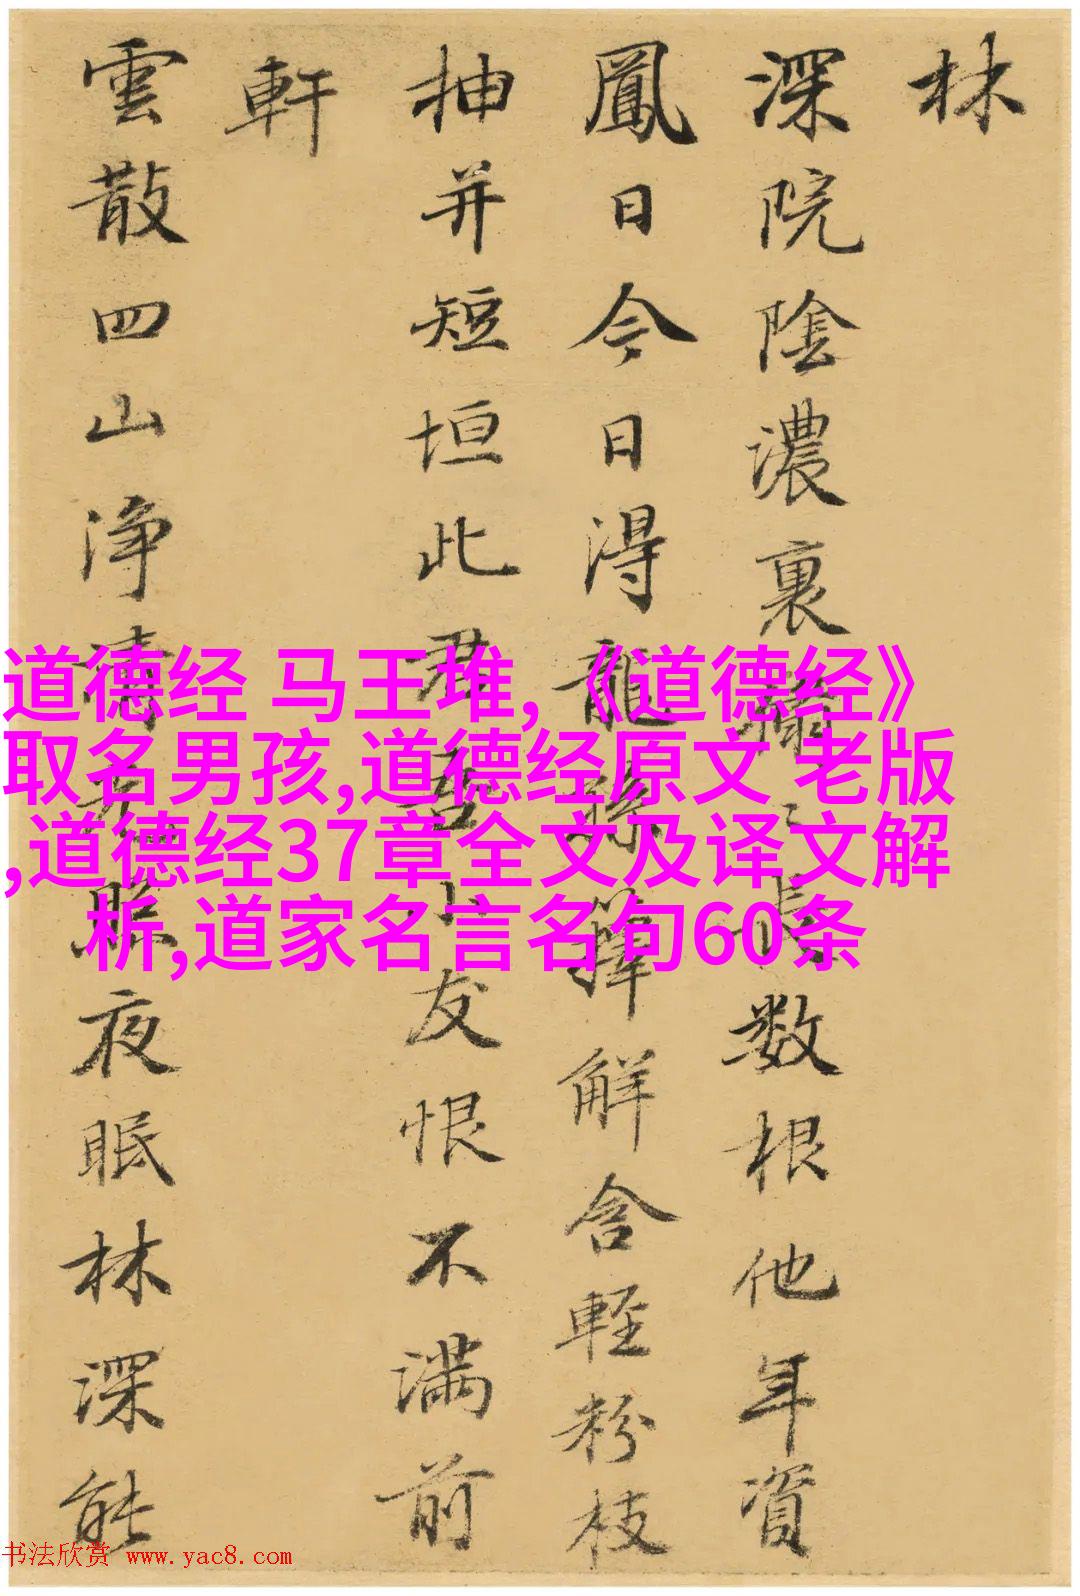 林
深院陰濃裏〻長数根他年資
鳳日今日淂龍孫籜解含輕粉枝
抽并短垣此君吾小友恨不満前
軒
雲散四山浄清光照夜眠林深能
道德经 马王堆,《道德经》
取名男孩,道德经原文 老版
,道德经37章全文及译文解
析,道家名言名句60条
书法欣赏 www.yac8.com